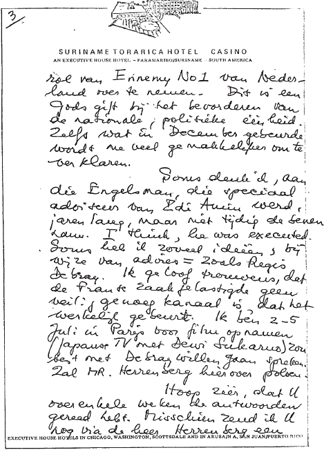 3)
SURINAME TORARICA HOTEL CASINO
AN EXECUTIVE HOUSE HOTEL - PARAMARIBO/SURINAME - SOUTH AMERICA
van No 1 van Neder-
land over te nemen. Dit is een
Gods gift bij het bevorderen van
de nationale, politieke éénheid.
Zelfs wat in December gebeurde
wordt nu veel gemakkelijker om te
verklaren.
Soms denk ik, aan
die Engelsman, die speciaal
adviseur van Idi Amin werd,
jarenlang, maar niet tijdig de benen
nam. I think, he was executed.
Soms heb ik zoveel ideeën, bij
wijze van advies = zoals Regis
Debray. Ik geloof trouwens, dat
de Franse Zaakgelastigde geen
veilig genoeg kanaal is dat het
werkelijk gebeurt. Ik ben 2-5
Juli in Parijs voor film opnamen
(Japanse TV met Dewi Sukarno) zou
best met Debray willen gaan spreken.
Zal MR. Herrenberg hierover polsen.
Hoop zéér, dat U
over enkele weken die antwoorden
gereed hebt. Misschien zend ik U
nog via de heer Herrenberg een
EXECUTIVE HOUSE HOTELS IN CHICAGO, WASHINGTON, SCOTTSDALE AND IN ARUBA/N.A, SAN JUAN/PUERTO RICO